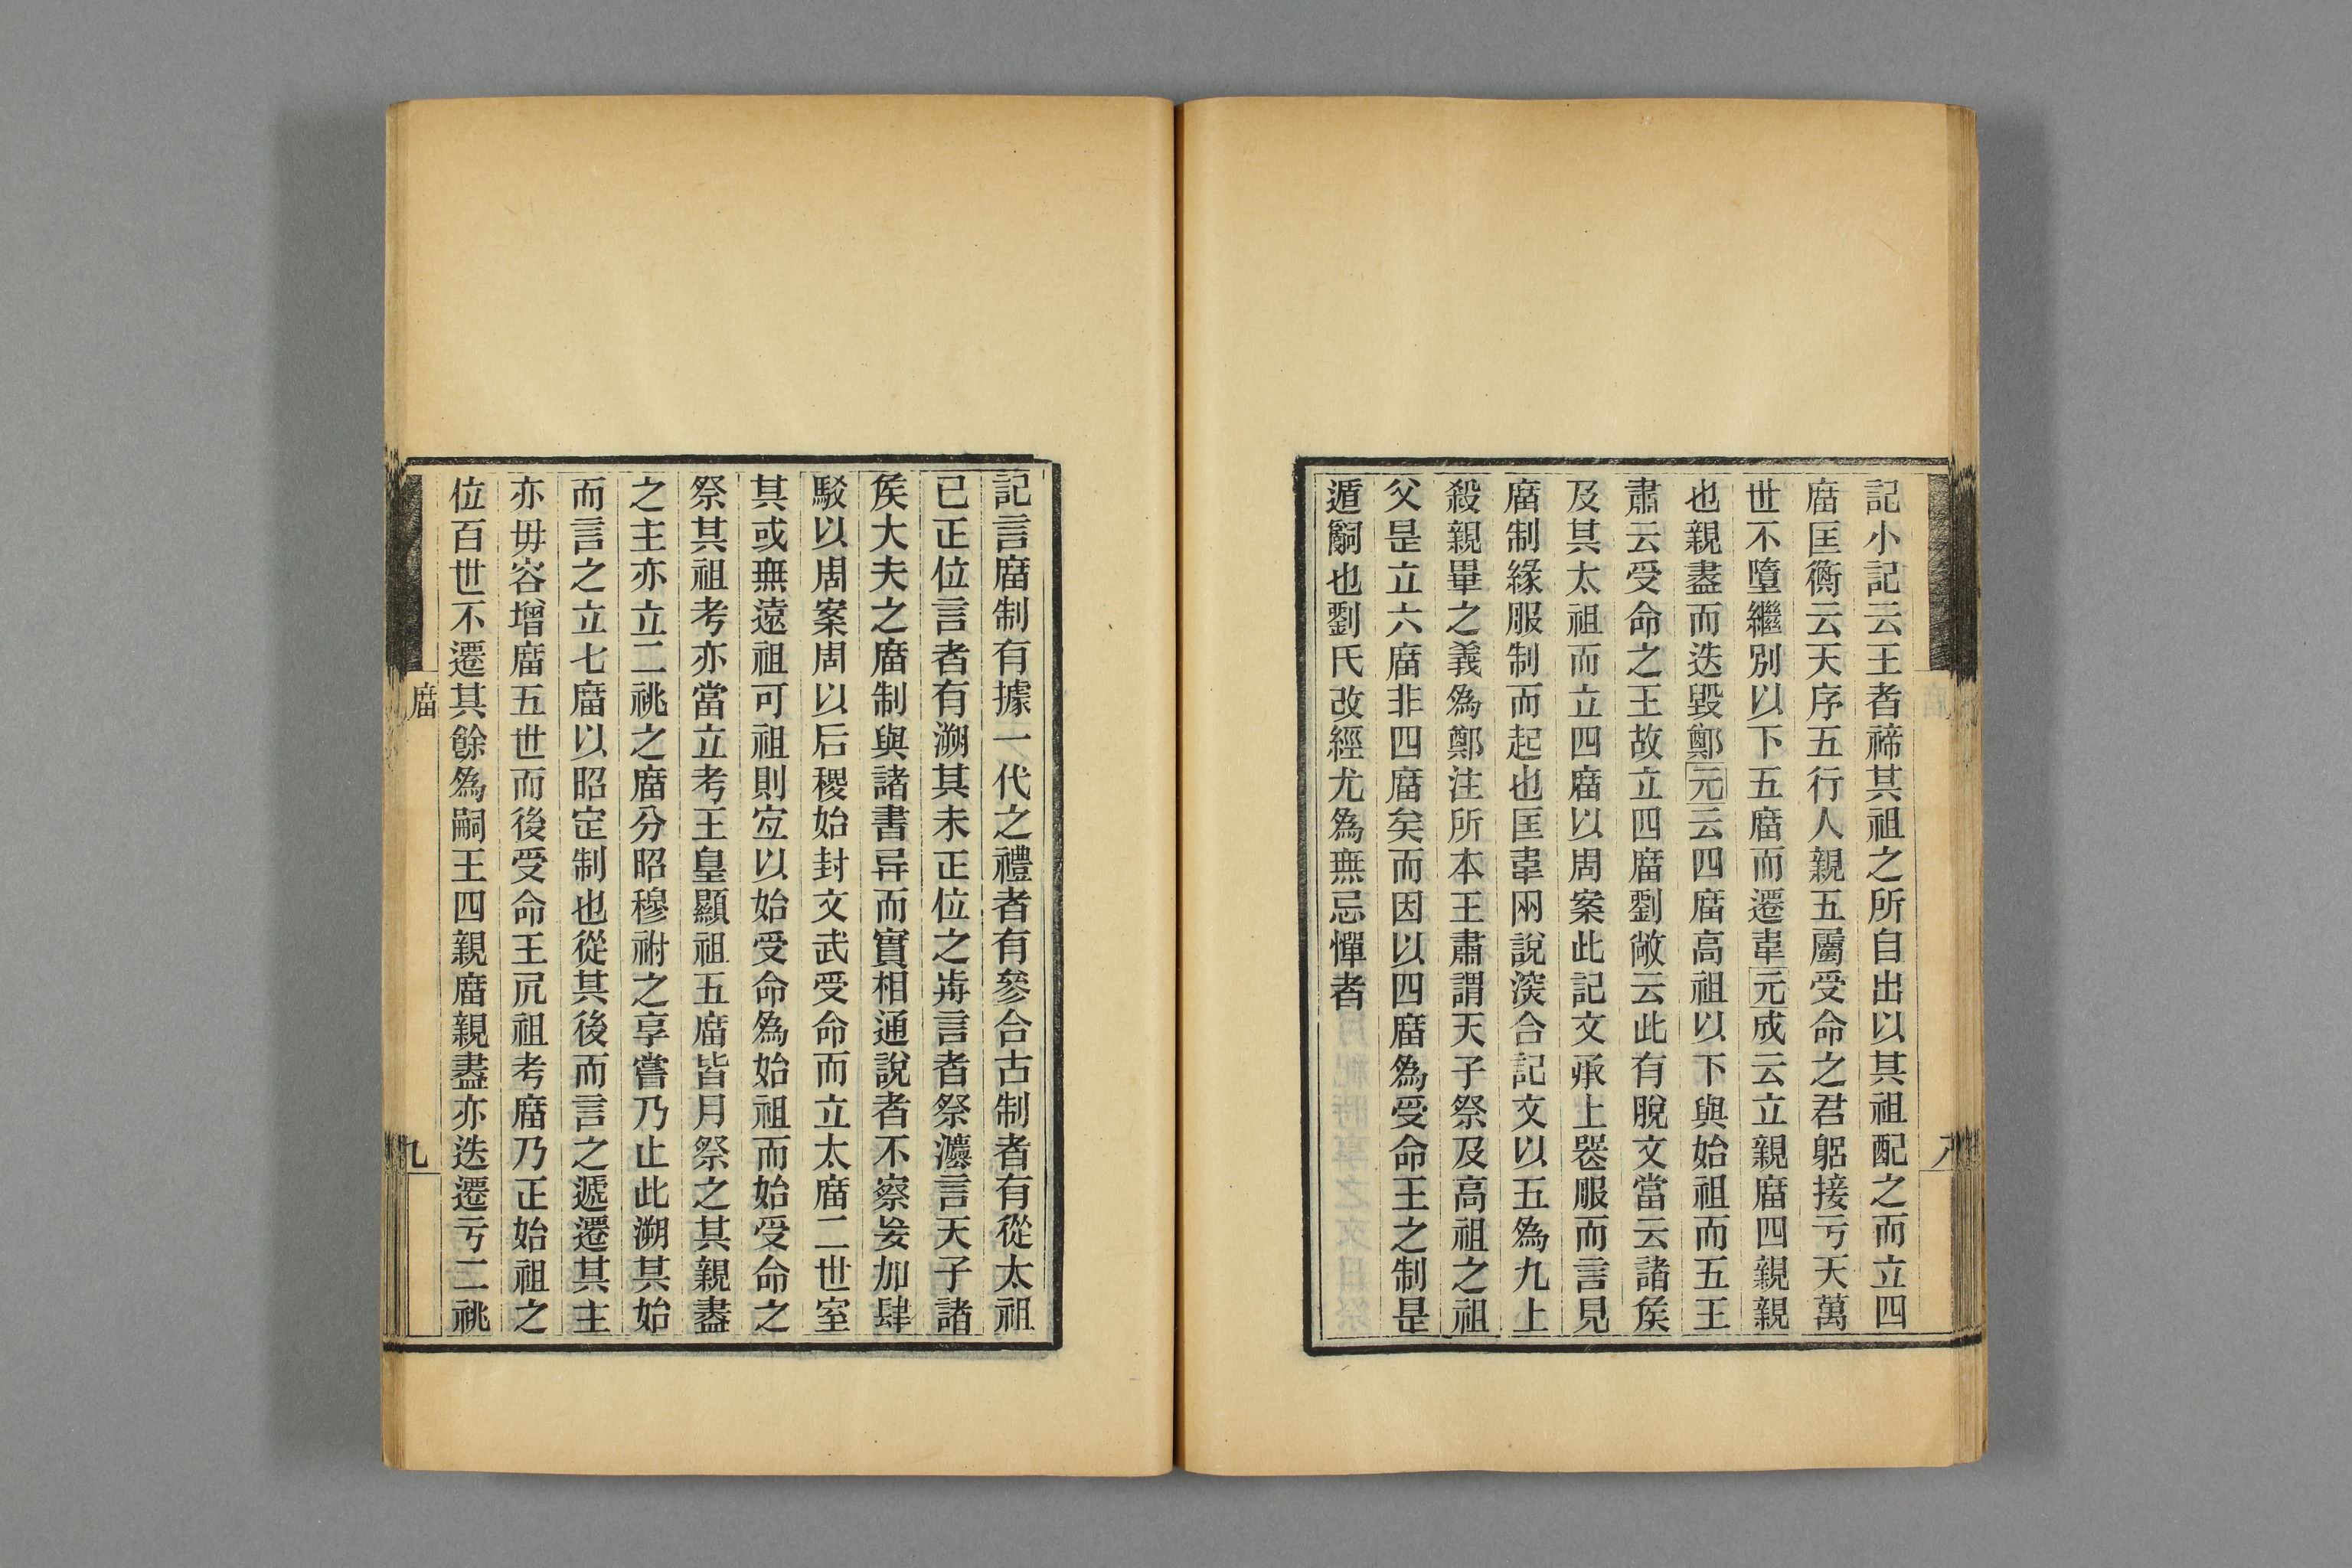 記小記云王者禘其祖之所自出以其祖配之而立四
庿匡衡云天序五行人親五屬受命之君躬接亏天萬
世不墮繼別以下五庿而遷韋元成云立親庿四親親
也親盡而迭毀鄭元云四庿高祖以下與始祖而五王
肅云受命之王故立四庿劉敞云此有脫文當云諸矦
及其太祖而立四庿以周案此記文承上器服而言見
庿制緣服制而起也匡韋兩說湥合記文以五爲九上
殺親畢之義爲鄭注所本王肅謂天子祭及高祖之祖
父是立六庿非四庿矣而因以四庿爲受命王之制是
遁嗣也劉氏改經尤爲無忌憚者
八
記言庿制有據一代之禮者有參合古制者有從太祖
已正位言者有溯其未正位之歬言者祭灋言天子諸
矦大夫之庿制與諸書异而實相通說者不察妄加肆
駁以周案周以后稷始封文武受命而立太庿二世室
其或無遠祖可祖則宐以始受命爲始祖而始受命之
祭其祖考亦當立考王皇顯祖五庿皆月祭之其親盡
之主亦立二祧之庿分昭穆祔之享嘗乃止此溯其始
而言之立七庿以昭定制也從其後而言之遞遷其主
亦毋容增庿五世而後受命王凥祖考庿乃正始祖之
位百世不遷其餘爲嗣王四親庿親盡亦迭遷亏二祧
庿
九